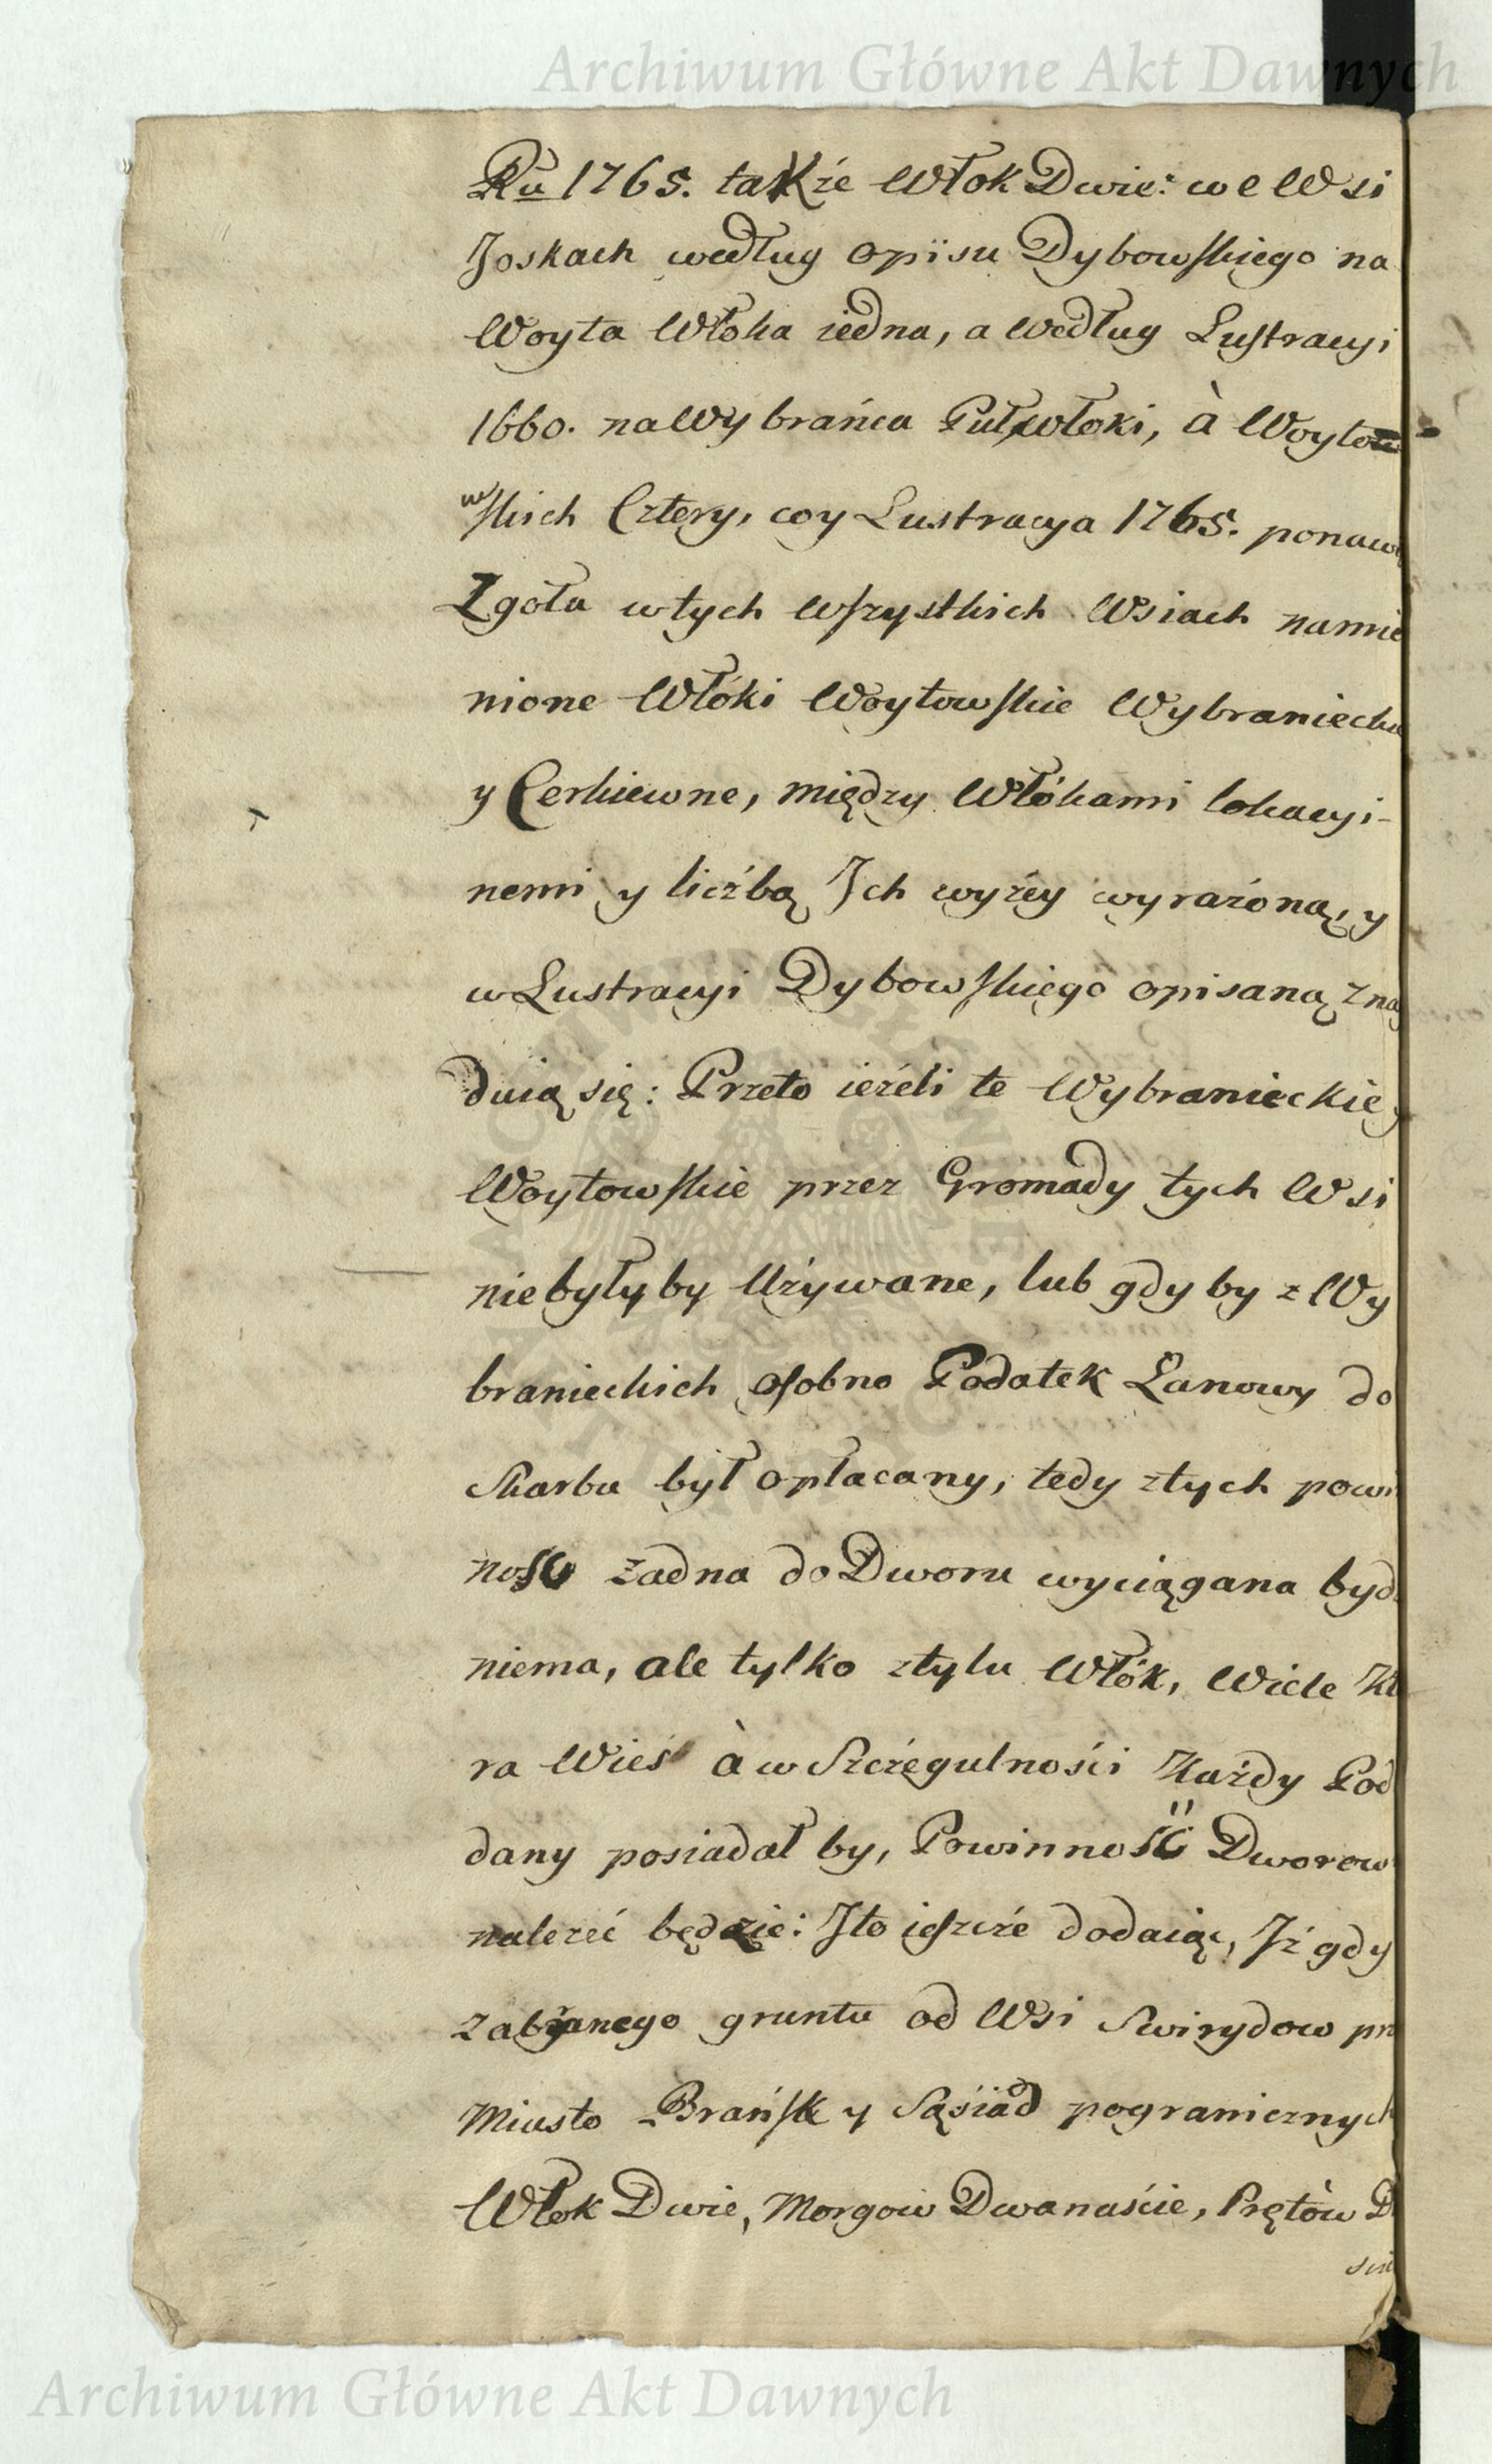 Archiwum Główne Akt Dawnych
Ru 1765. takźe Włok Dwie: we Wsi
Joskach według opisu Dybowskiego na
Woyta Włoka iedna, a według Lustracyi
1660. na Wybrańca Puł włoki, à Woyto
wskich Cztery, co y Lustracya 1765. ponawi
Zgoła w tych wszystkich Wsiach namie
nione Włóki Woytowskie Wybranieckie
y Cerkiewne, między Włókami lokacyi-
nemi y liczbą Jch wyżey wyrażoną, y
w Lustracyi Dybowskiego opisaną znay
duią się: Przeto ieżeli te Wybranieckie y
Woytowskie przez Gromady tych Wsi
niebyłyby Używane, lub gdy by z Wy
branieckich osobno Podatek Łanowy do
Skarbu był opłacany, tedy z tych powin
ność żadna do Dworu wyciągana bydź
niema, ale tylko z tylu Włók, Wiele Któ
ra Wieś à w Szczegulności Każdy Pod
dany posiadał by, Powinność Dworow
należeć będzie: Jto ieszcze dodaiąc, Jż gdy
zabranego gruntu od Wsi Swirydow prz
Miasto Brańsk y Sąsiad pogranicznych
Włok Dwie, Morgow Dwanaście, Prętów D
Archiwum Główne Akt Dawnych